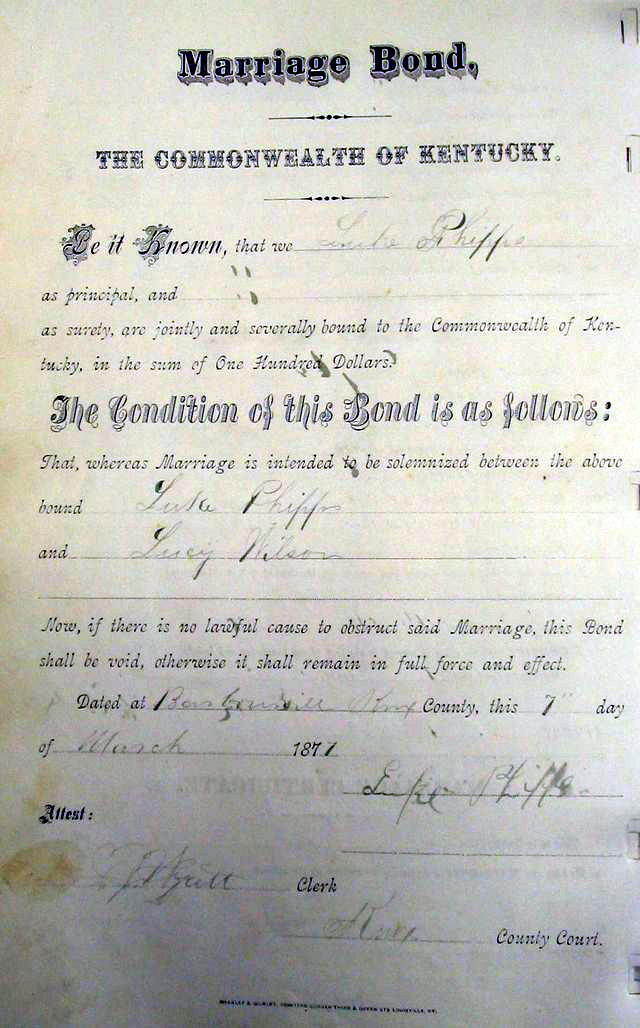 Marriage Bond,
THE COMMONWEALTH OF KENTUCKY.
Be it Known, that we Luke Phipps
as principal, and "
as surety, are jointly and severally bound to the Commonwealth of Ken-
tucky, in the sum of One Hundred Dollars:
The Condition of this Bond is as follows:
That, whereas Marriage is intended to be solemnized between the above
bound Luke Phipps
and Lucy Wilson
Now, if there is no lawful cause to obstruct said Marriage, this Bond
shall be void, otherwise it shall remain in full force and effect.
Dated at Barbourville Knox County, this 7" day
of March 1877
Luke Phipps
Attest:
Clerk
Knox County Court.